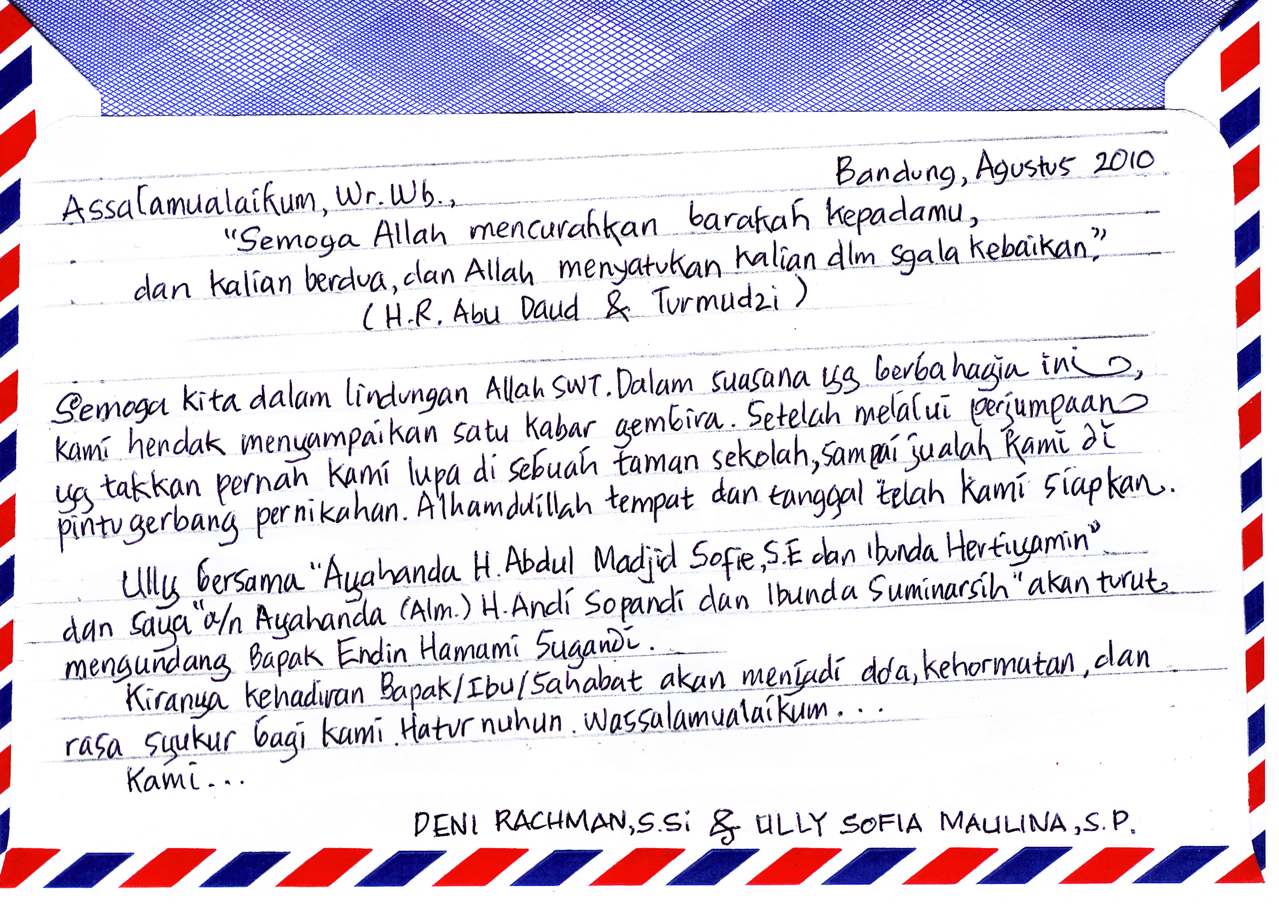 Bandung, Agustus 2010
Assalamualaikum, Wr. Wb.,
"Semoga Allah mencurahkan barakah kepadamu,
dan kalian berdua, dan Allah menyatukan kalian dlm sgala kebaikan."
(H.R. Abu Daud & Turmudzi)
Semoga kita dalam lindungan Allah SWT. Dalam suasana yg berbahagia ini,
kami hendak menyampaikan satu kabar gembira. Setelah melalui perjumpaan
yg takkan pernah kami lupa di sebuah taman sekolah, sampai jualah kami di
pintu gerbang pernikahan. Alhamdulillah tempat dan tanggal telah kami siapkan.
Ully bersama "Ayahanda H. Abdul Madjid Sofie, S.E dan Ibunda Hertiyamin"
dan saya "a/n Ayahanda (Alm.) H. Andi Sopandi dan Ibunda Suminarsih" akan turut
mengundang Bapak Endin Hamami Sugandi.
Kiranya kehadiran Bapak/Ibu/Sahabat akan menjadi do'a, kehormatan, dan
rasa syukur bagi kami. Hatur nuhun. Wassalamualaikum...
Kami...
DENI RACHMAN, S.Si & ULLY SOFIA MAULINA, S.P.